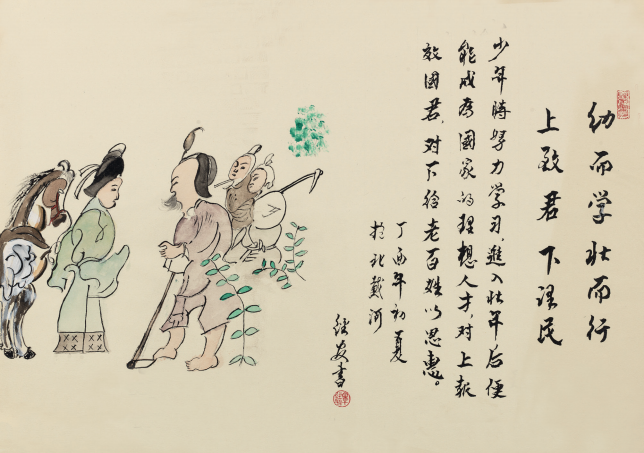 幼而学壮而行
上致君下泽民
少年時努力学习進入壮年后便
能成为國家的理想人才,对上报
效国君,对下给老百姓以恩惠。
丁酉年初夏
於北戴河
書